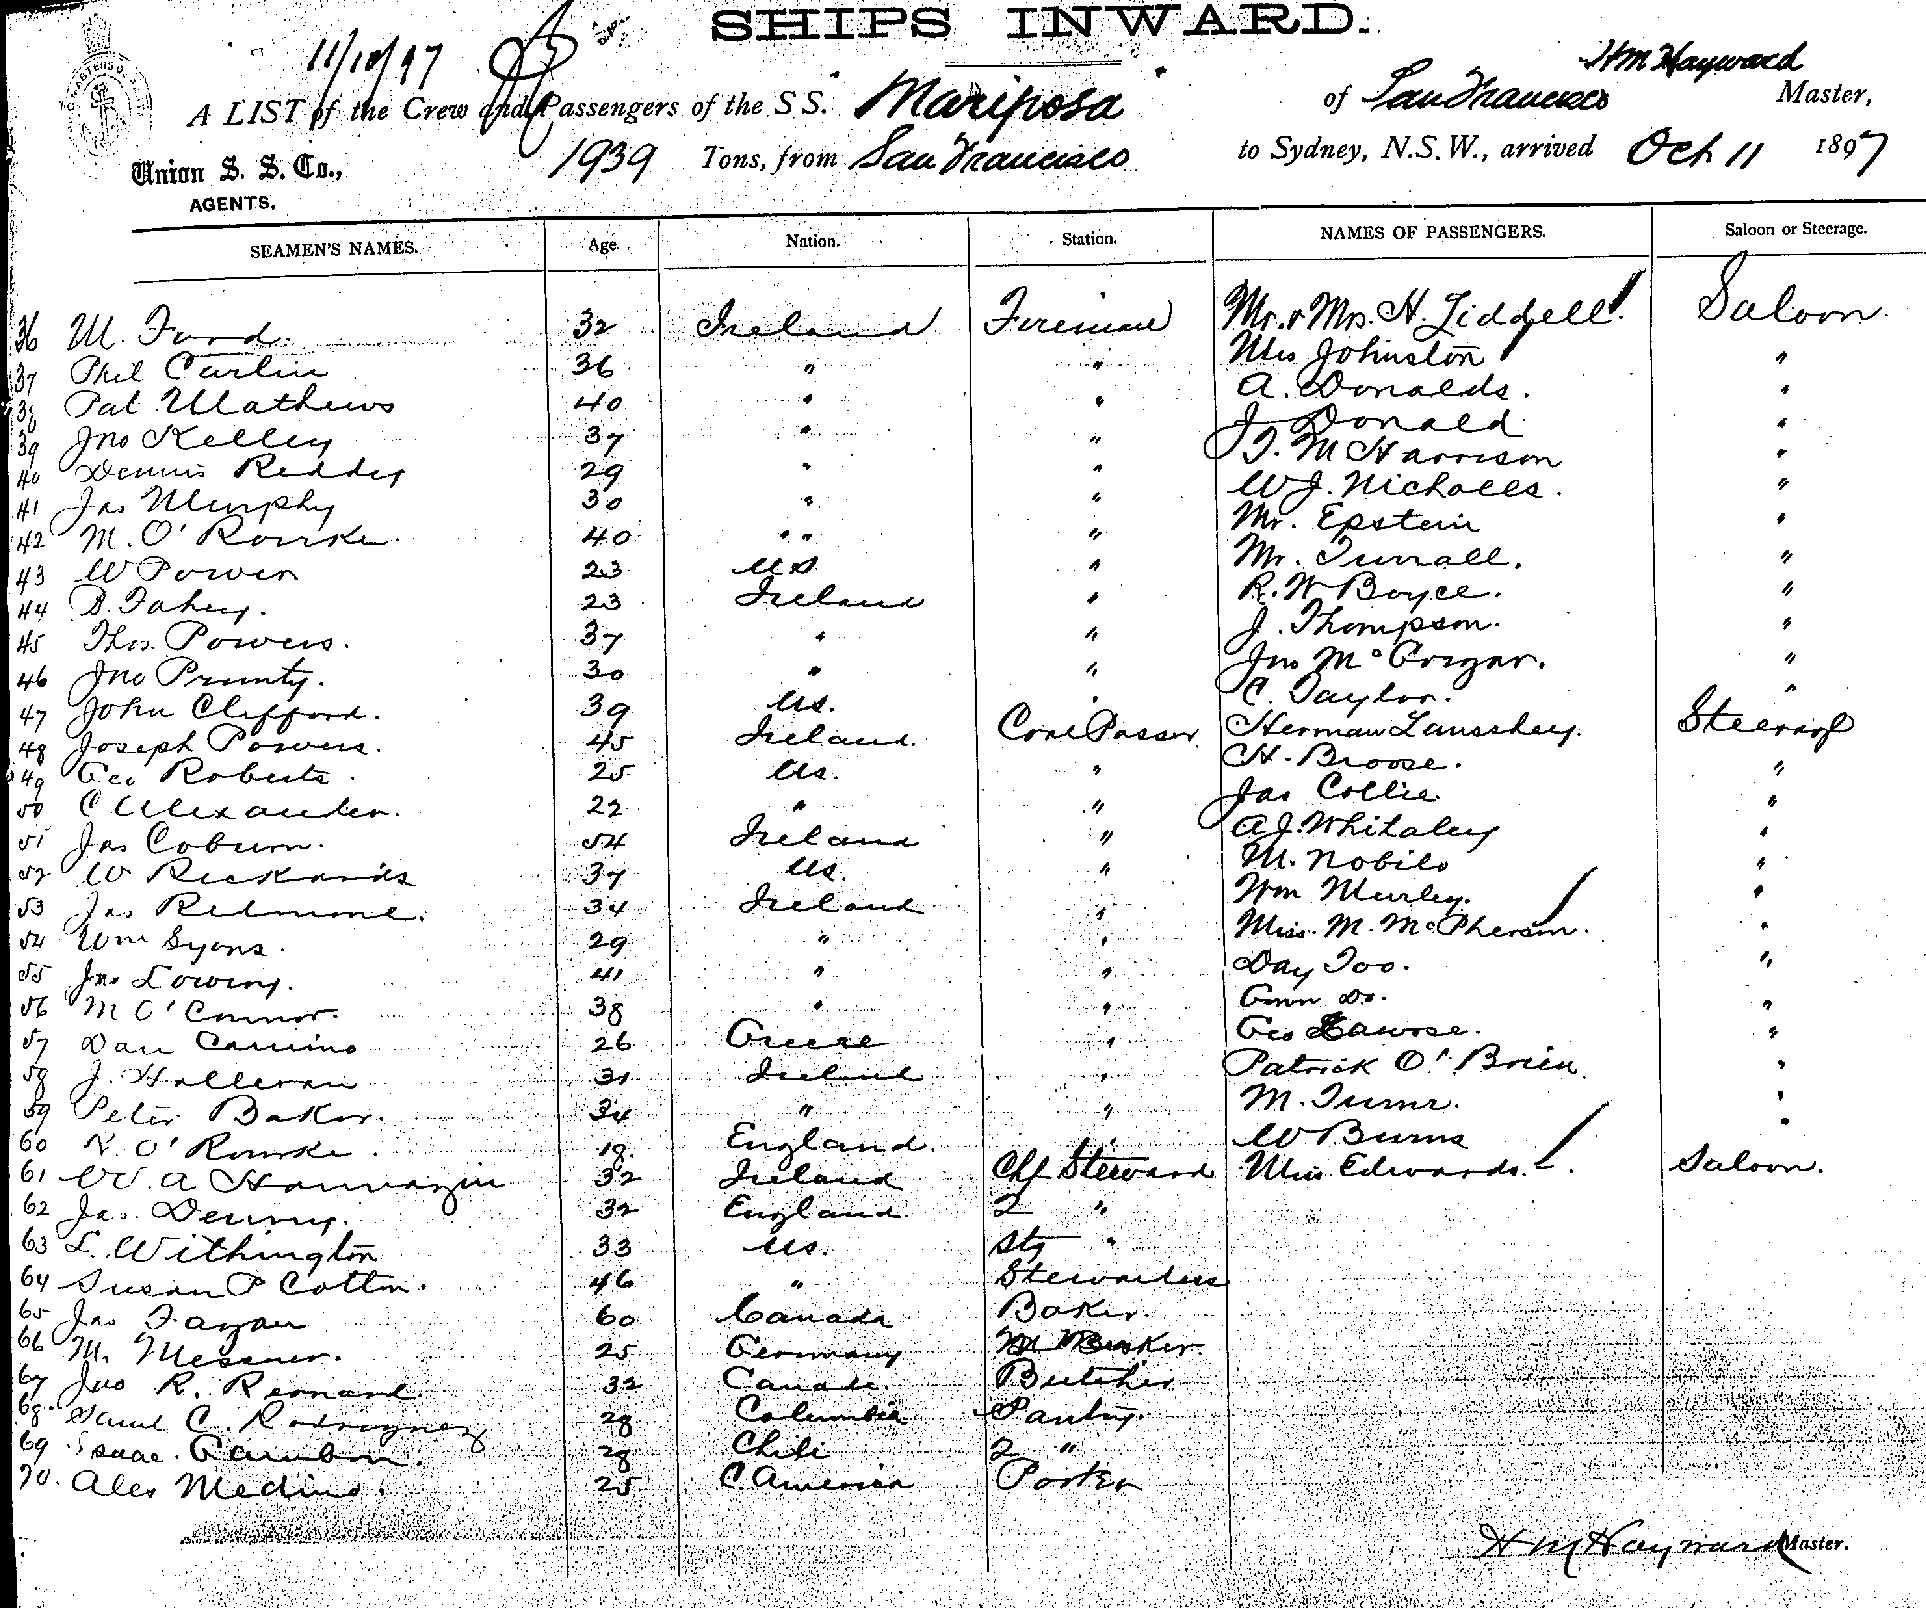 SHIPS INWARD.
11/10/97
HM Hayward
A LIST of the Crew and Passengers of the SS. "Mariposa" of San Francisco Master,
Union S. S. Co., 1939 Tons, from San Francisco to Sydney, N.S.W., arrived Oct 11 1897
AGENTS.
SEAMEN'S NAMES. Age. Nation. Station. NAMES OF PASSENGERS. Saloon or Steerage.
36 M. Ford. 32 Ireland Fireman Mr. & Mrs. H. Liddell Saloon.
37 Phil Carlin 36 " " Mrs Johnston "
38 Pat Mathews 40 " " A. Donalds. "
39 Jno Kelley 37 " " J. Donald "
40 Dennis Reddy 29 " " T. M Harrison "
41 Jas Murphy 30 " " W J. Nicholls. "
42 M. O'Rourke. 40 " " " Mr. Epstein "
43 W Power 23 US. " Mr. Turrall. "
44 D. Fahey. 23 Ireland " R. W Boyce. "
45 Thos. Powers. 37 " " J. Thompson. "
46 Jno Prunty. 30 " " Jno Mc "
47 John Clifford. 39 US. " C. Taylor. "
48 Joseph Powers. 45 Ireland. Coal Passer Herman Steerage
49 Geo Roberts. 25 US. " H. Broose. "
50 C Alexander. 22 " " Jas Collie "
51 Jas Coburn. 54 Ireland " A J. Whitaley "
52 W Rickards 37 US. " M. Nobilo "
53 Jas Redmond. 34 Ireland " Wm Murley. "
54 Wm Lyons. 29 " " Miss. M. McPherson. "
55 Jno Lowery. 41 " " Day Too. "
56 M O'Connor. 38 " " Do. "
57 Dan Camino 26 Greece " Geo Lawrse. "
58 J. Halleran 31 Ireland " Patrick O'Brien "
59 Peter Baker. 34 " " M. Turner. "
60 R. O'Rourke. 19. England. " W Burns "
61 W. A Hannagin 32 Ireland Chf Steward Miss Edwards. Saloon.
62 Jas. Denny. 32 England 2 "
63 L. Withington 33 US. Stg "
64 Susan P Cotton. 46 " Stewardess
65 Jas Fagan 60 Canada Baker.
66 M. Messner. 25 Germany Baker
67 Jno R. Renard 32 Canada. Butcher
68 Saml C. Rodriguez 28 Columbia Pantry.
69 Isaac. Gambon. 28 Chili 2 "
70. Alex Medino. 25 C America Porter
H M Hayward Master.